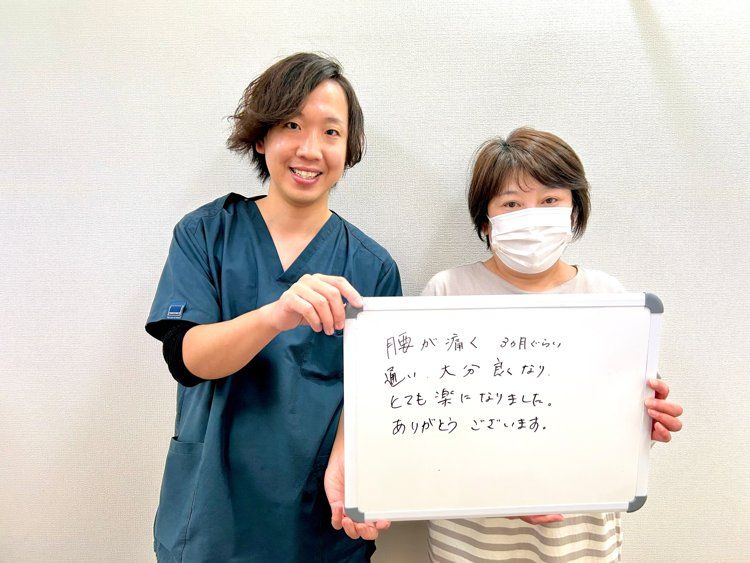 腰が痛く 3ヵ月ぐらい
通い、大分良くなり、
とても楽になりました。
ありがとうございます。